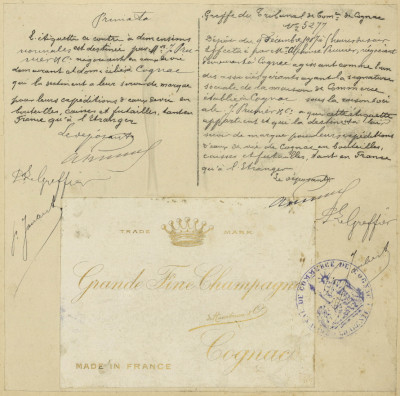 Primata
L'étiquette ci contre à dimensions
normales est destinée par Mrs A.
négociant en eaux de vie
demeurant et domicilié à Cognac
qui la destinent à leur servir de marque
pour leurs expéditions d'eaux de vie en
bouteilles, caisses et futailles, tant en
France qu'à l'Etranger.
Le déposant
Le Greffier
Greffe du Tribunal de Comce de Cognac
No 5277
Déposé du 9 Décembre
effectué par négociant
demeurant à Cognac agissant comme l'un
des associés gérants ayant la signature
sociale de la maison de Commerce
établie à Cognac sous la raison sociale
que cette étiquette
appartient et que la destine à leur
servir de marque pour leurs expéditions
d'eaux de vie de Cognac en bouteilles,
caisses et futailles, tant en France
qu'à l'Etranger
Le déposant
Le Greffier
TRADE MARK
Grande Fine Champagne
Cognac
MADE IN FRANCE
DE COMMERCE DE